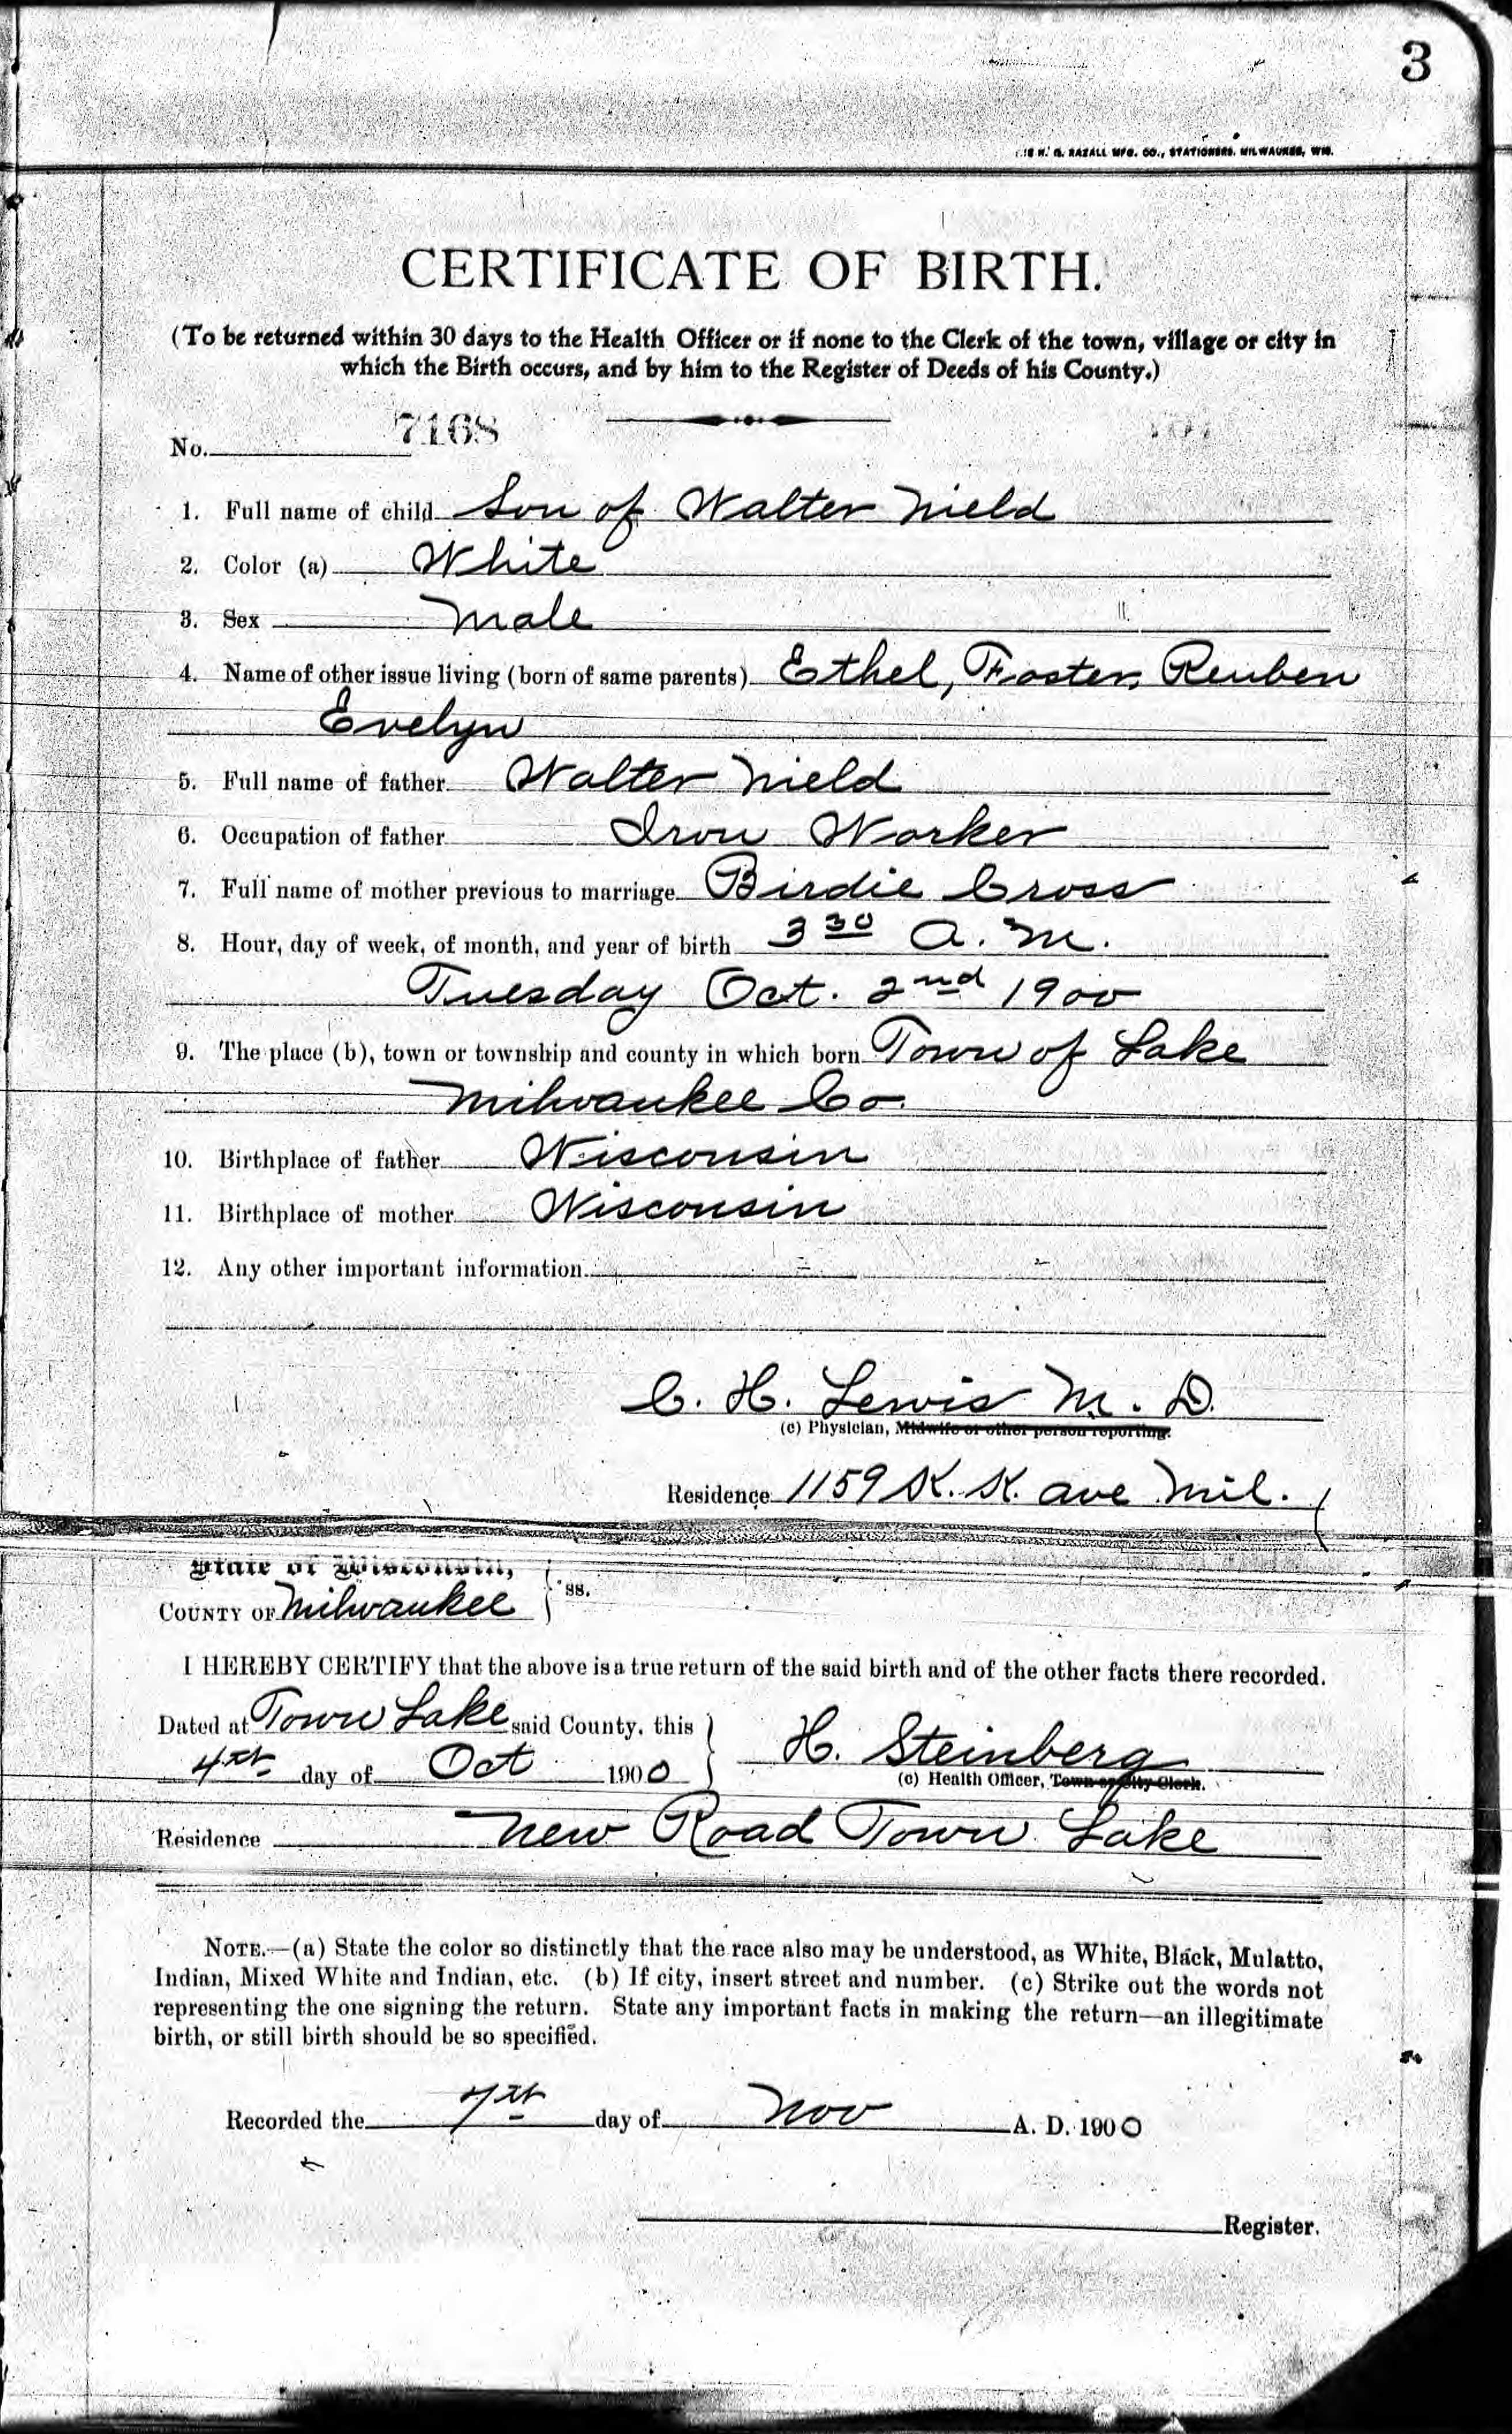 3
H. G. RAZALL MFG. CO., STATIONERS, MILWAUKEE, WIS.
CERTIFICATE OF BIRTH.
(To be returned within 30 days to the Health Officer or if none to the Clerk of the town, village or city in
which the Birth occurs, and by him to the Register of Deeds of his County.)
No. 7168
1. Full name of child Son of Walter Nield
2. Color (a) White
3. Sex Male
4. Name of other issue living (born of same parents) Ethel, Foster, Reuben
Evelyn
5. Full name of father Walter Nield
6. Occupation of father Iron Worker
7. Full name of mother previous to marriage Birdie Cross
8. Hour, day of week, of month, and year of birth 3 30 A. M.
Tuesday Oct. 2nd 1900
9. The place (b), town or township and county in which born Town of Lake
Milwaukee Co.
10. Birthplace of father Wisconsin
11. Birthplace of mother Wisconsin
12. Any other important information
C. H. Lewis M. D.
(c) Physician, Midwife or other person reporting.
Residence 1159 K. K. ave Mil.
State of Wisconsin,
COUNTY OF Milwaukee } ss.
I HEREBY CERTIFY that the above is a true return of the said birth and of the other facts there recorded.
Dated at Town Lake said County, this
4th day of Oct 1900
H. Steinberg
(c) Health Officer, Town or City Clerk.
Residence New Road Town Lake
NOTE.—(a) State the color so distinctly that the race also may be understood, as White, Black, Mulatto,
Indian, Mixed White and Indian, etc. (b) If city, insert street and number. (c) Strike out the words not
representing the one signing the return. State any important facts in making the return—an illegitimate
birth, or still birth should be so specified.
Recorded the 7th day of Nov A. D. 1900
Register.